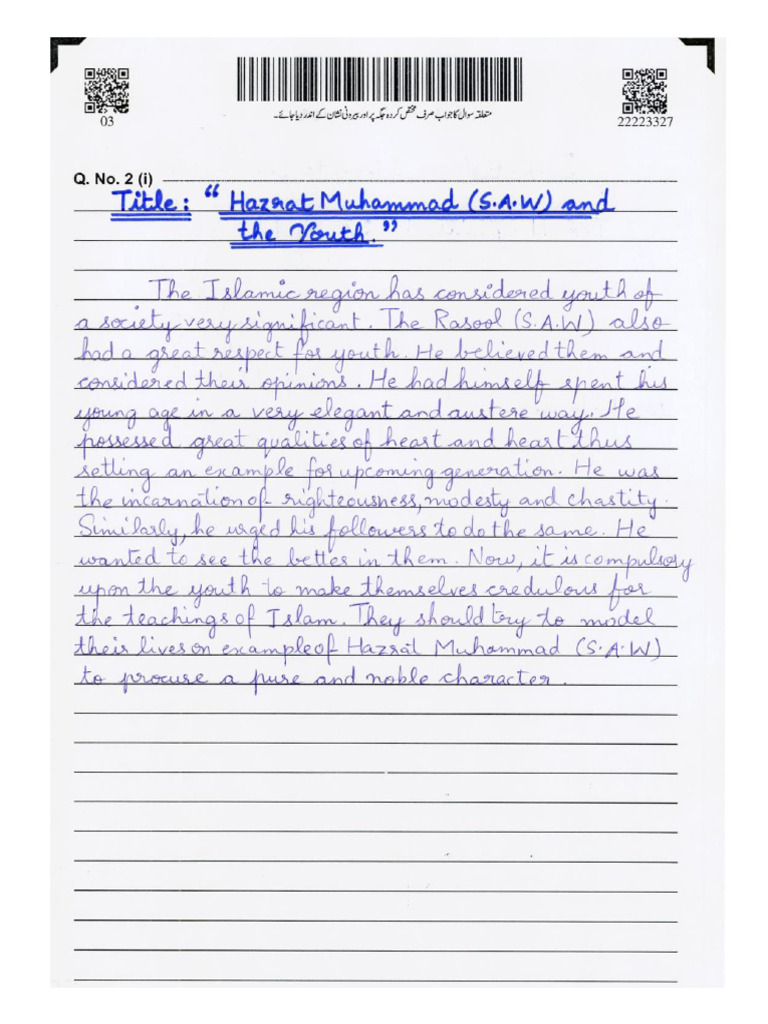 03
متعلقہ سوال کا جواب صرف مختص کردہ جگہ پر اور بیرونی نشان کے اندر دیا جائے۔
22223327
Q. No. 2 (i)
Title: “ Hazrat Muhammad (S.A.W) and
the Youth.”
The Islamic region has considered youth of
a society very significant. The Rasool (S.A.W) also
had a great respect for youth. He believed them and
considered their opinions. He had himself spent his
young age in a very elegant and austere way. He
possessed great qualities of heart and heart thus
setting an example for upcoming generation. He was
the incarnation of righteousness, modesty and chastity.
Similarly, he urged his followers to do the same. He
wanted to see the better in them. Now, it is compulsory
upon the youth to make themselves credulous for
the teachings of Islam. They should try to model
their lives on example of Hazrat Muhammad (S.A.W)
to procure a pure and noble character.